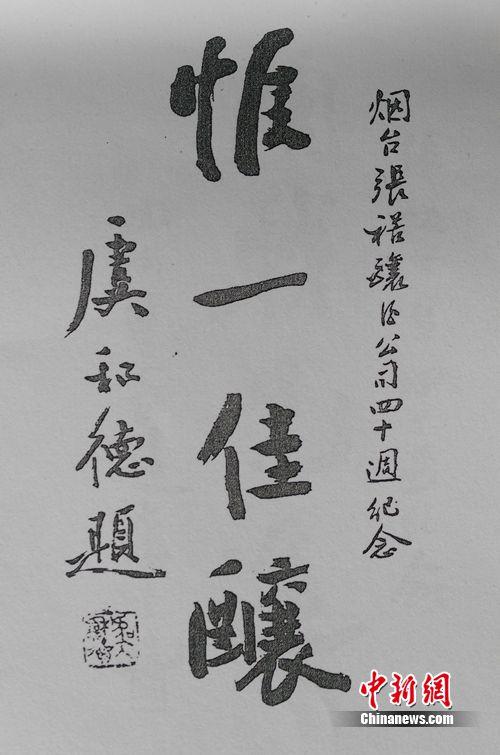 烟台張裕釀酒公司四十週紀念
惟一佳釀
虞和德題
中新网
Chinanews.com